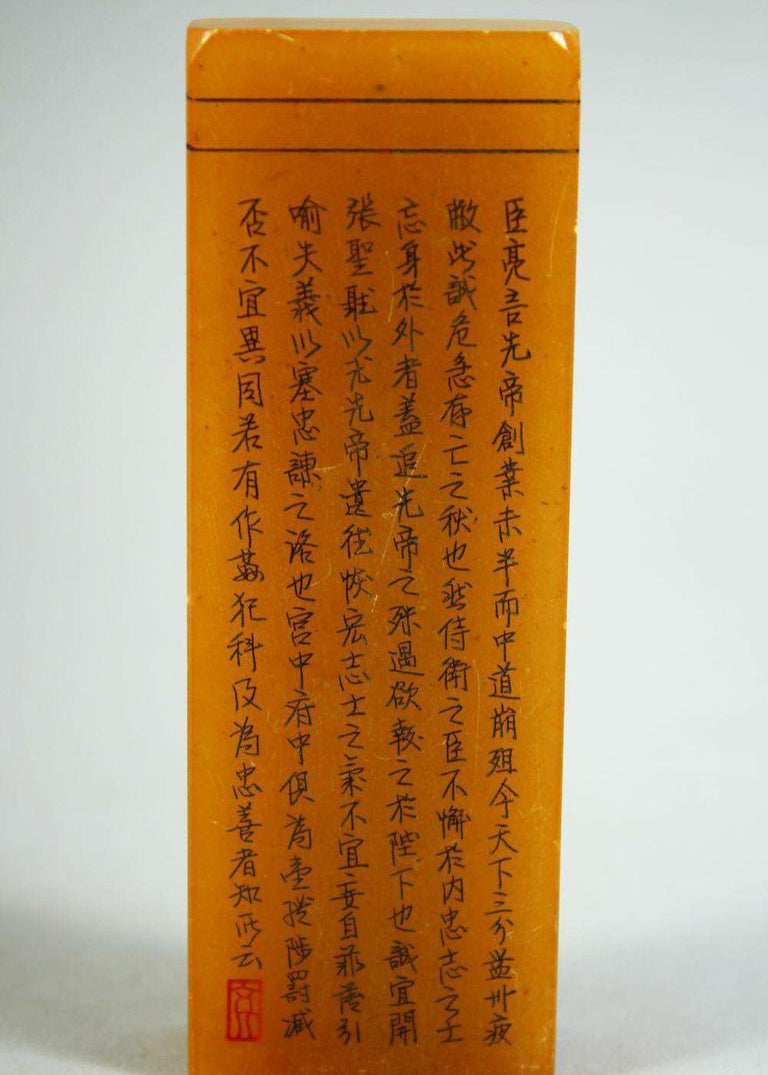 臣亮言先帝創業未半而中道崩殂今天下三分益州疲
敝此誠危急存亡之秋也然侍衛之臣不懈於内忠志之士
忘身於外者蓋追先帝之殊遇欲報之於陛下也誠宜開
張聖聽以光先帝遺德恢宏志士之氣不宜妄自菲薄引
喻失義以塞忠諫之路也宮中府中俱為壹體陟罰臧
否不宜異同若有作姦犯科及為忠善者